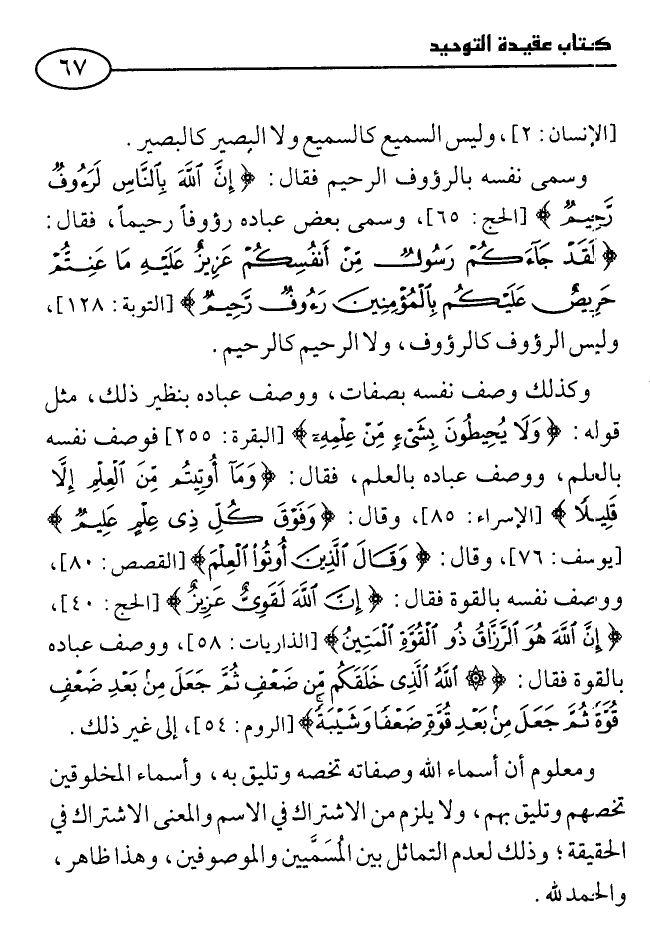 كتاب عقيدة التوحيد
٦٧
[الإنسان: ٢]، وليس السميع كالسميع ولا البصير كالبصير.
وسمى نفسه بالرؤوف الرحيم فقال: ﴿ إِنَّ ٱللَّهَ بِٱلنَّاسِ لَرَءُوفٌ
رَّحِيمٌ ﴾ [الحج: ٦٥]، وسمى بعض عباده رؤوفاً رحيماً، فقال:
﴿ لَقَدْ جَاءَكُمْ رَسُولٌ مِّنْ أَنفُسِكُمْ عَزِيزٌ عَلَيْهِ مَا عَنِتُّمْ
حَرِيصٌ عَلَيْكُم بِٱلْمُؤْمِنِينَ رَءُوفٌ رَّحِيمٌ ﴾ [التوبة: ١٢٨]،
وليس الرؤوف كالرؤوف، ولا الرحيم كالرحيم.
وكذلك وصف نفسه بصفات، ووصف عباده بنظير ذلك، مثل
قوله: ﴿ وَلَا يُحِيطُونَ بِشَىْءٍ مِّنْ عِلْمِهِۦٓ ﴾ [البقرة: ٢٥٥] فوصف نفسه
بالعلم، ووصف عباده بالعلم، فقال: ﴿ وَمَآ أُوتِيتُم مِّنَ ٱلْعِلْمِ إِلَّا
قَلِيلًا ﴾ [الإسراء: ٨٥]، وقال: ﴿ وَفَوْقَ كُلِّ ذِى عِلْمٍ عَلِيمٌ ﴾
[يوسف: ٧٦]، وقال: ﴿ وَقَالَ ٱلَّذِينَ أُوتُوا۟ ٱلْعِلْمَ ﴾ [القصص: ٨٠]،
ووصف نفسه بالقوة فقال: ﴿ إِنَّ ٱللَّهَ لَقَوِىٌّ عَزِيزٌ ﴾ [الحج: ٤٠]،
﴿ إِنَّ ٱللَّهَ هُوَ ٱلرَّزَّاقُ ذُو ٱلْقُوَّةِ ٱلْمَتِينُ ﴾ [الذاريات: ٥٨]، ووصف عباده
بالقوة فقال: ﴿ ۞ ٱللَّهُ ٱلَّذِى خَلَقَكُم مِّن ضَعْفٍ ثُمَّ جَعَلَ مِنۢ بَعْدِ ضَعْفٍ
قُوَّةً ثُمَّ جَعَلَ مِنۢ بَعْدِ قُوَّةٍ ضَعْفًا وَشَيْبَةً ﴾ [الروم: ٥٤]، إلى غير ذلك.
ومعلوم أن أسماء الله وصفاته تخصه وتليق به، وأسماء المخلوقين
تخصهم وتليق بهم، ولا يلزم من الاشتراك في الاسم والمعنى الاشتراك في
الحقيقة؛ وذلك لعدم التماثل بين المُسَمَّيين والموصوفين، وهذا ظاهر،
والحمد لله.